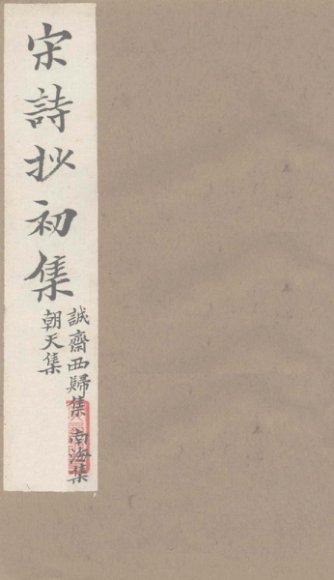 宋詩抄初集
誠齋西歸集 南海集
朝天集